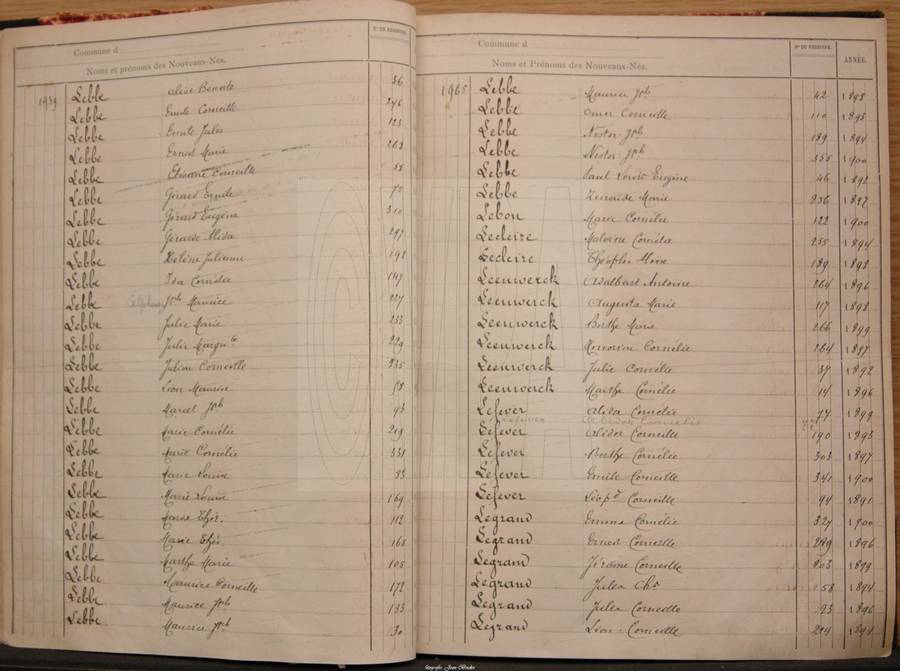 Commune d
Noms et prénoms des Nouveaux-Nés.
Nº DU REGISTRE.
1939 Lebbe Alice Benoite 36
Lebbe Emile Corneille 246
Lebbe Emile Jules 123
Lebbe Ernest Marie 263
Lebbe Etienne Corneille 55
Lebbe Gérard Emile 75
Lebbe Gérard Eugène 310
Lebbe Gérarde Alida 297
Lebbe Hélène Julienne 198
Lebbe Ida Cornélia 147
Lebbe Alphonse Jph Maurice 227
Lebbe Julie Marie 233
Lebbe Julie Margte 229
Lebbe Julien Corneille 235
Lebbe Léon Maurice 58
Lebbe Marcel Jph 93
Lebbe Marie Cornélie 219
Lebbe Marie Cornélie 331
Lebbe Marie Louise 83
Lebbe Marie Louise 169
Lebbe Marie Thér. 112
Lebbe Marie Thér. 165
Lebbe Marthe Marie 105
Lebbe Maurice Corneille 172
Lebbe Maurice Jph 183
Lebbe Maurice Jph 30
Commune d
Noms et Prénoms des Nouveaux-Nés.
Nº DU REGISTRE.
ANNÉE.
1965 Lebbe Maurice Jph 42 1898
Lebbe Omer Corneille 110 1893
Lebbe Nestor Jph 189 1894
Lebbe Nestor Jph 355 1900
Lebbe Paul Louis Eugène 46 1892
Lebbe Marie 236 1897
Lebon Marie Cornélie 122 1900
Lecleire Malvine Cornélia 255 1894
Lecleire Théophile 189 1898
Leenwerck Adalbert Antoine 264 1896
Leenwerck Augusta Marie 117 1898
Leenwerck Berthe Marie 266 1899
Leenwerck Honorine Cornélie 264 1897
Leenwerck Julie Cornélie 37 1892
Leenwerck Marthe Cornélie 14 1896
Lefever Alida Cornélie 77 1899
Lefever Alidor Cornelis
Lefever Alidor Corneille 190 1893
Lefever Berthe Cornélie 303 1897
Lefever Emile Corneille 341 1900
Lefever Léopd Corneille 94 1891
Legrand Emma Cornélie 327 1900
Legrand Ernest Corneille 289 1896
Legrand Jérôme Corneille 203 1899
Legrand Jules Chs 158 1894
Legrand Jules Corneille 23 1896
Legrand Léon Corneille 294 1894